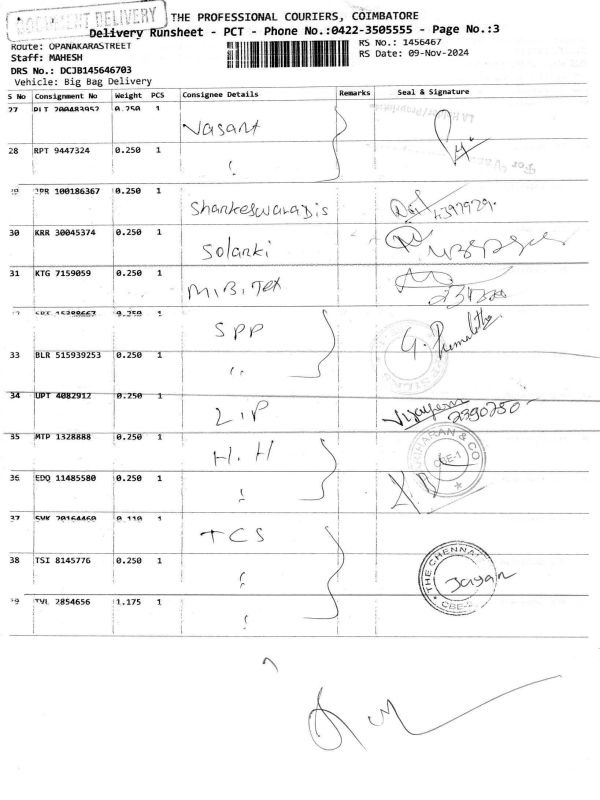 DOCUMENT DELIVERY
THE PROFESSIONAL COURIERS, COIMBATORE
Delivery Runsheet - PCT - Phone No.:0422-3505555 - Page No.:3
Route: OPANAKARASTREET
RS No.: 1456467
Staff: MAHESH
RS Date: 09-Nov-2024
DRS No.: DCJB145646703
Vehicle: Big Bag Delivery
S No Consignment No Weight PCS Consignee Details Remarks Seal & Signature
27 PLT 200483952 0.250 1
Vasant
28 RPT 9447324 0.250 1
29 JPR 100186367 0.250 1
Shankeswara Dis
30 KRR 30045374 0.250 1
Solanki
31 KTG 7159059 0.250 1
M.B.Tex
0.250 1
SPP
33 BLR 515939253 0.250 1
34 UPT 4082912 0.250 1
L.I.P
2390250
35 MTP 1328888 0.250 1
H.H
& CO
CBE-1
36 EDQ 11485580 0.250 1
37 SVK 20164460 0.110 1
TCS
38 TSI 8145776 0.250 1
THE CHENNAI
Jayan
39 TVL 2854656 1.175 1